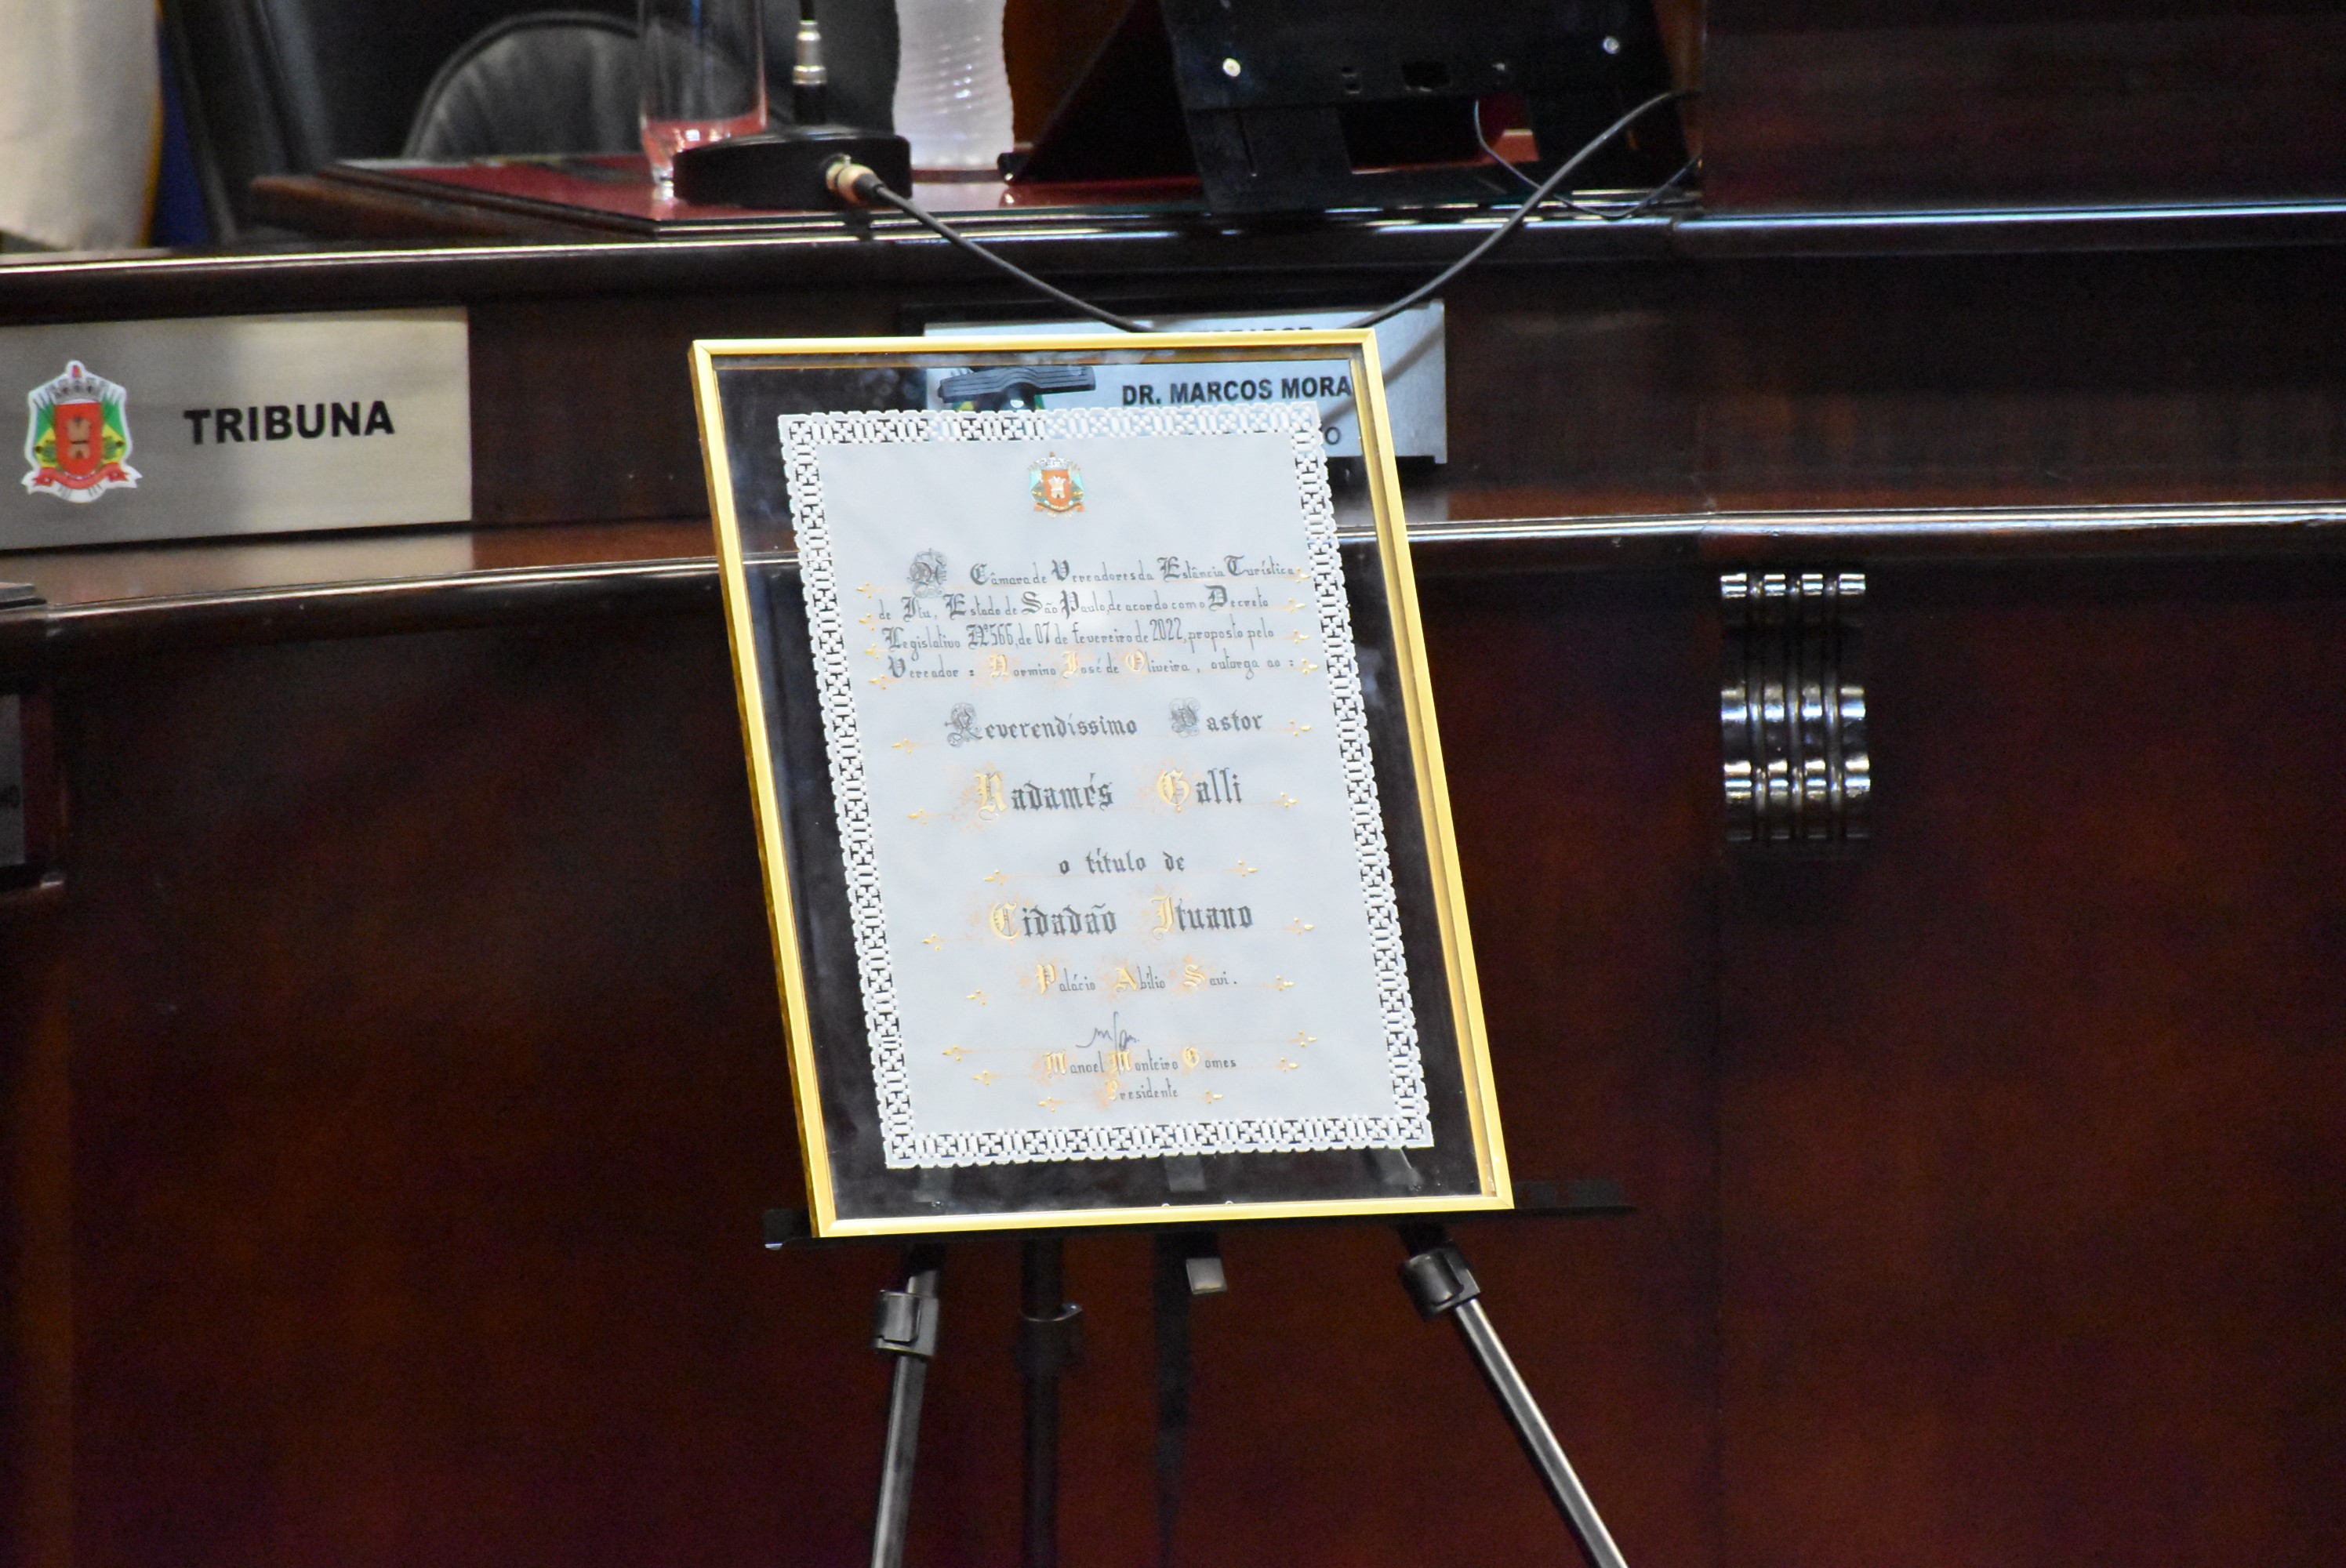 TRIBUNA
DR. MARCOS MORA
A Câmara de Vereadores da Estância Turística
de Itu, Estado de São Paulo, de acordo com o Decreto
Legislativo Nº 566, de 07 de fevereiro de 2022, proposto pelo
Vereador : Normino José de Oliveira , outorga ao :
Reverendíssimo Pastor
Radamés Galli
o título de
Cidadão Ituano
Palácio Abílio Savi .
Manoel Monteiro Gomes
Presidente